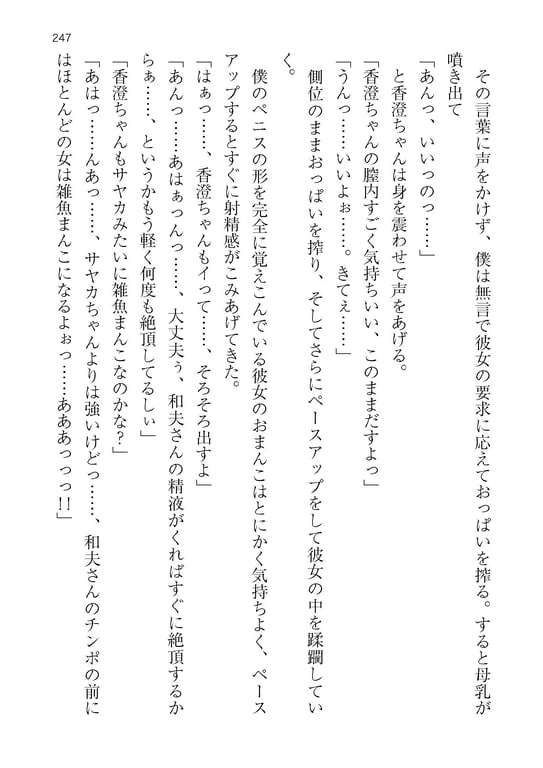 247
その言葉に声をかけず、僕は無言で彼女の要求に応えておっぱいを搾る。すると母乳が
噴き出て
「あんっ、いいっのっ……」
と香澄ちゃんは身を震わせて声をあげる。
「香澄ちゃんの膣内すごく気持ちいい、このままだすよっ」
「うんっ……いいよぉ……。きてぇ……」
側位のままおっぱいを搾り、そしてさらにペースアップをして彼女の中を蹂躙してい
く。
僕のペニスの形を完全に覚えこんでいる彼女のおまんこはとにかく気持ちよく、ペース
アップするとすぐに射精感がこみあげてきた。
「はぁっ……、香澄ちゃんもイって……、そろそろ出すよ」
「あんっ……あはぁっんっ……、大丈夫ぅ、和夫さんの精液がくればすぐに絶頂するか
らぁ……、というかもう軽く何度も絶頂してるしぃ」
「香澄ちゃんもサヤカみたいに雑魚まんこなのかな?」
「あはっ……んあっ……、サヤカちゃんよりは強いけどっ……、和夫さんのチンポの前に
はほとんどの女は雑魚まんこになるよぉっ……あああっっっ!!」